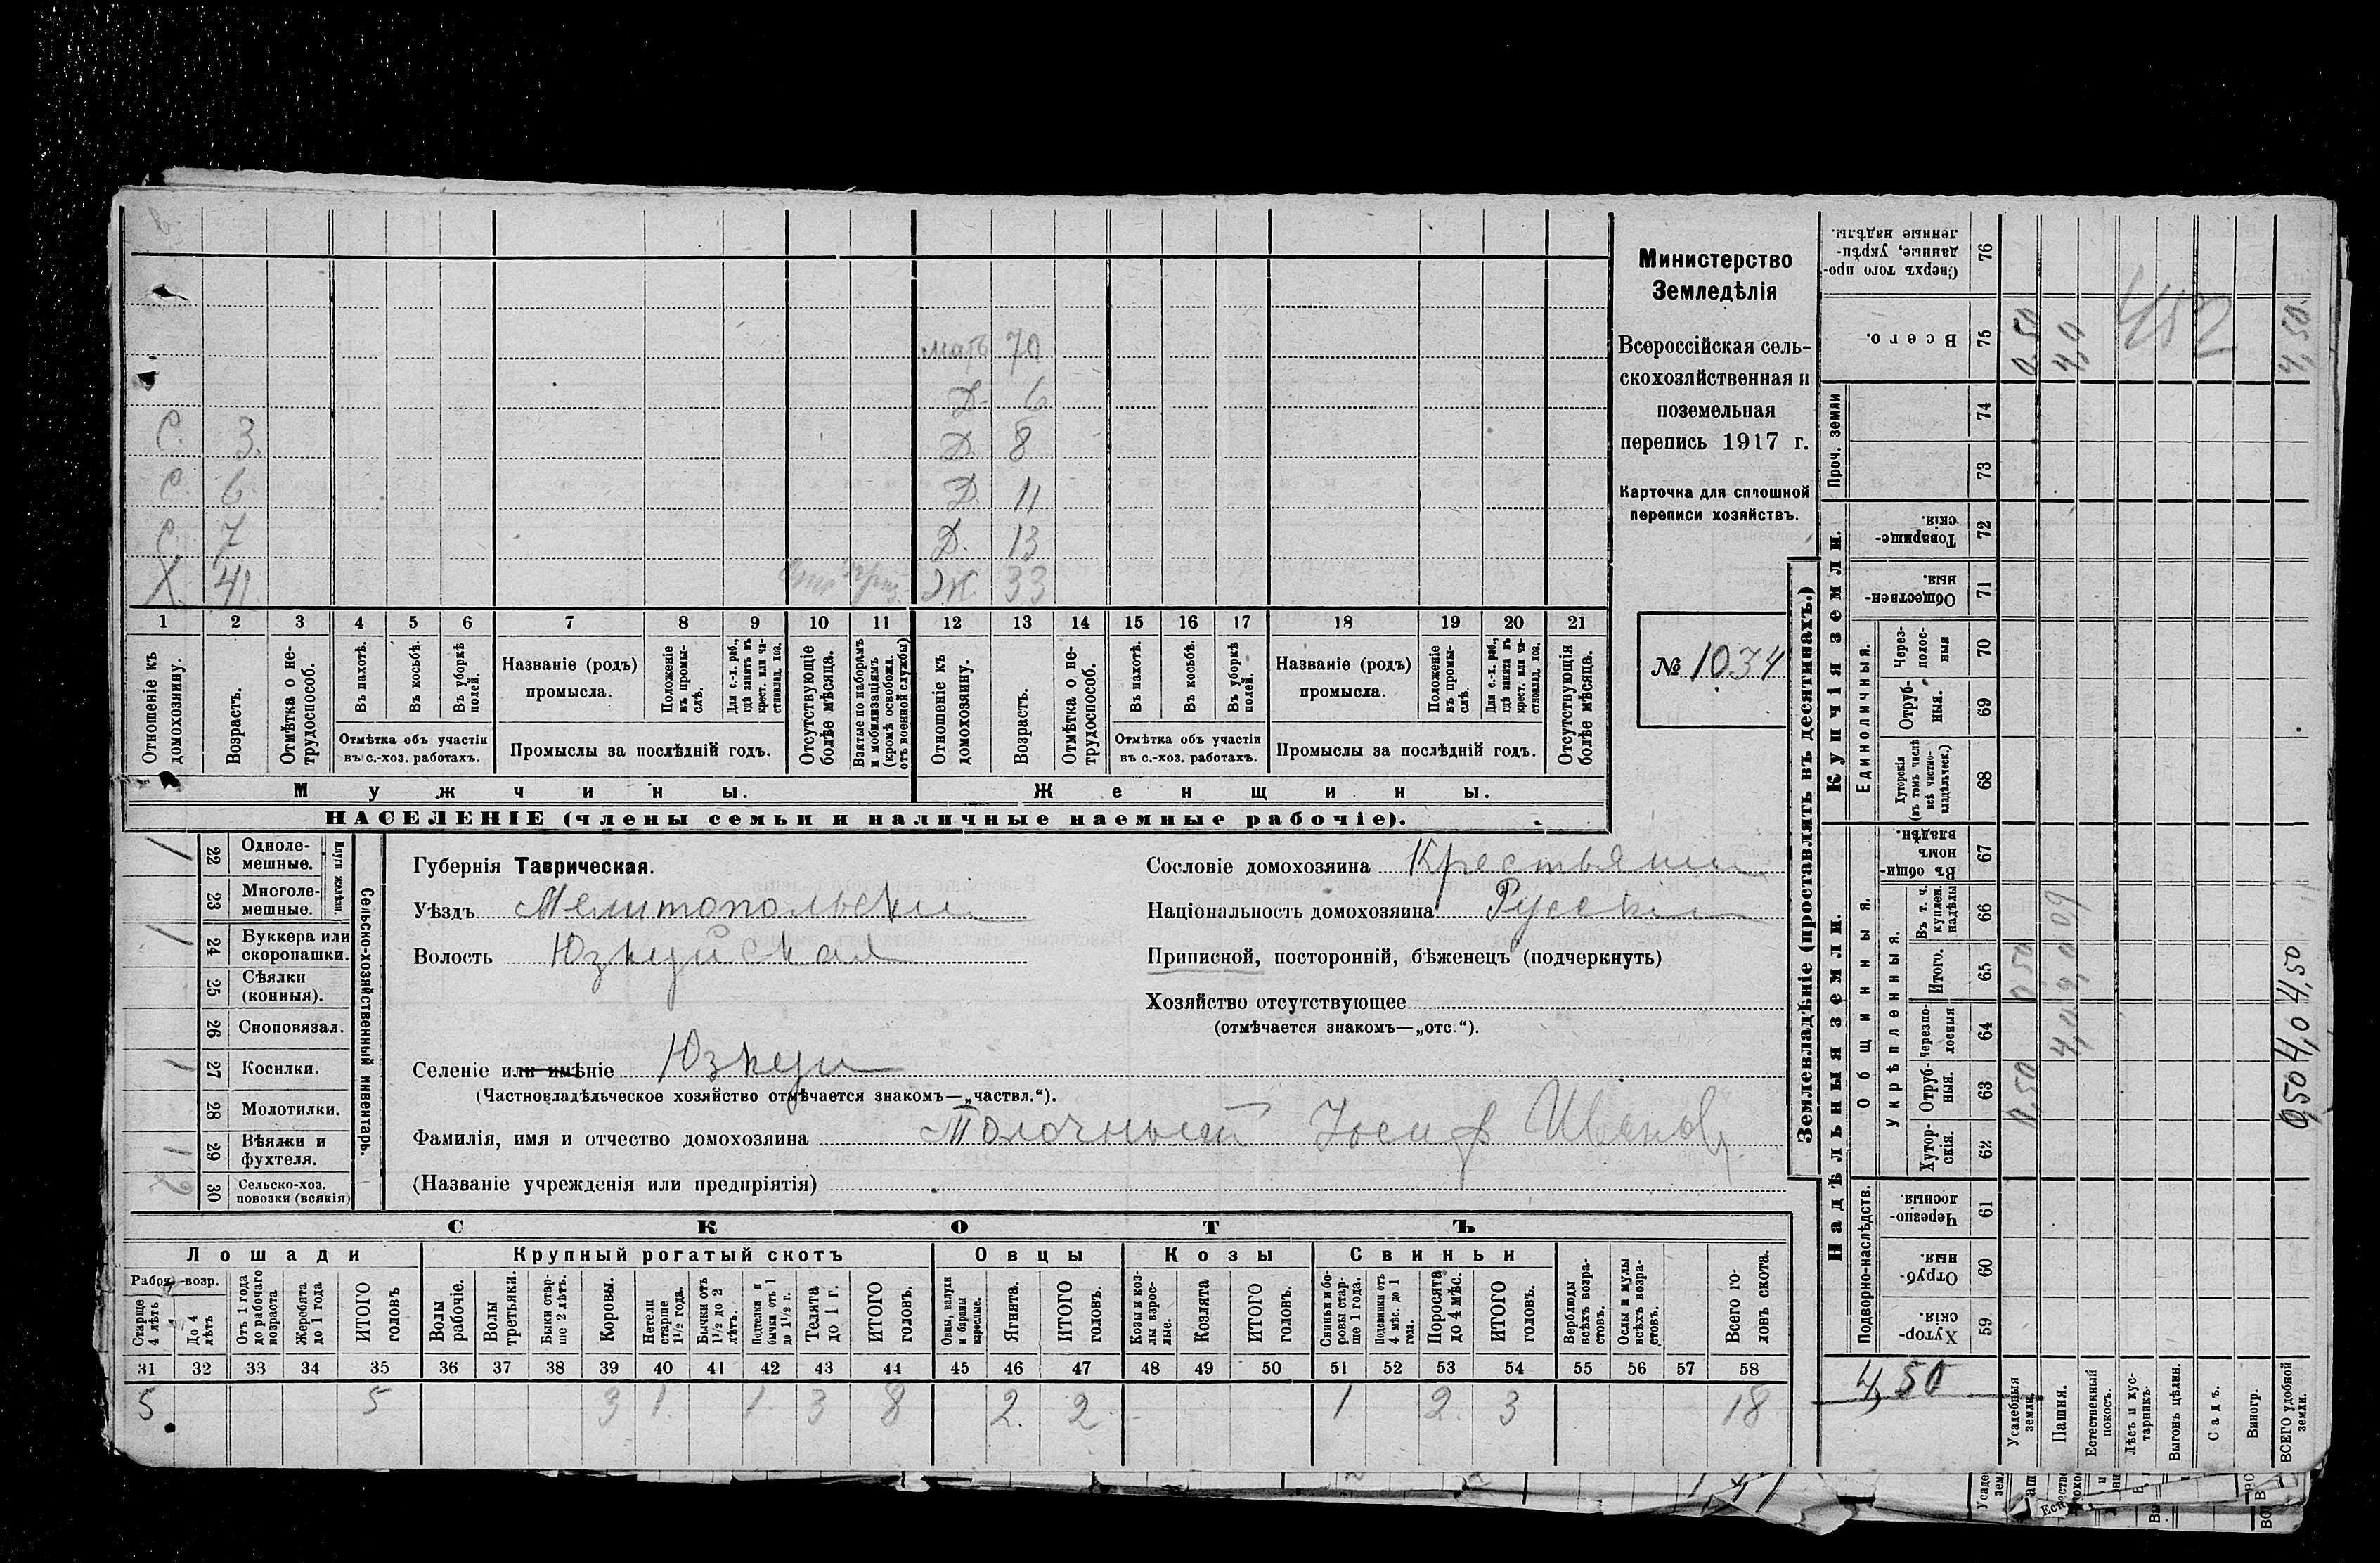 мать 70
Д. 6
С. 3. Д. 8
С. 6 Д. 11
С. 7 Д. 13
Х 41 Ж. 33
1 2 3 4 5 6 7 8 9 10 11 12 13 14 15 16 17 18 19 20 21
Отношеніе къ домохозяину.
Возрастъ.
Отмѣтка о не-
трудоспособ.
Въ пахотѣ.
Въ косьбѣ.
Въ уборкѣ
полей.
Отмѣтка объ участіи
въ с.-хоз. работахъ.
Названіе (родъ)
промысла.
Положеніе
въ промы-
слѣ.
Для с.-х. раб.,
гдѣ занятъ въ
крест. или ча-
стновлад. хоз.
Промыслы за послѣдній годъ.
Отсутствующіе
болѣе мѣсяца.
Взятые по наборамъ
и мобилизаціямъ
(кромѣ освобожд.
отъ военной службы)
Отношеніе къ
домохозяину.
Возрастъ.
Отмѣтка о не-
трудоспособ.
Въ пахотѣ.
Въ косьбѣ.
Въ уборкѣ
полей.
Отмѣтка объ участіи
въ с.-хоз. работахъ.
Названіе (родъ)
промысла.
Положеніе
въ промы-
слѣ.
Для с.-х. раб.,
гдѣ занятъ въ
крест. или ча-
стновлад. хоз.
Промыслы за послѣдній годъ.
Отсутствующія
болѣе мѣсяца.
Мужчины.
Женщины.
НАСЕЛЕНІЕ (члены семьи и наличные наемные рабочіе).
Министерство
Земледѣлія
Всероссійская сель-
скохозяйственная и
поземельная
перепись 1917 г.
Карточка для сплошной
переписи хозяйствъ.
№ 1034
1 22 Одноле-
мешные.
23 Многоле-
мешные.
Плуги желѣзн.
1 24 Буккера или
скоропашки.
25 Сѣялки
(конныя).
26 Сноповязал.
1 27 Косилки.
28 Молотилки.
1 29 Вѣялки и
фухтеля.
2 30 Сельско-хоз.
повозки (всякія)
Сельско-хозяйственный инвентарь.
Губернія Таврическая.
Уѣздъ Мелитопольскій
Волость Юзкуйская
Селеніе или имѣніе Юзкуи
(Частновладѣльческое хозяйство отмѣчается знакомъ—„частвл.“).
Фамилія, имя и отчество домохозяина Молочный Іосиф Иванов.
(Названіе учрежденія или предпріятія)
Сословіе домохозяина Крестьянин
Національность домохозяина Русский
Приписной, посторонній, бѣженецъ (подчеркнуть)
Хозяйство отсутствующее
(отмѣчается знакомъ—„отс.“).
СКОТЪ
Лошади Крупный рогатый скотъ Овцы Козы Свиньи
Рабоч.-возр.
Старше
4 лѣтъ
До 4
лѣтъ
Отъ 1 года
до рабочаго
возраста
Жеребята
до 1 года
ИТОГО
головъ
Волы
рабочіе.
Волы
третьяки.
Быки стар-
ше 2 лѣтъ.
Коровы.
Нетели
старше
1½ года.
Бычки отъ
1½ до 2
лѣтъ.
Подтелки и
бычки отъ 1
до 1½ г.
Телята
до 1 г.
ИТОГО
головъ.
Овцы, валухи
и бараны
взрослые.
Ягнята.
ИТОГО
головъ.
Козы и коз-
лы взрос-
лые.
Козлята
ИТОГО
головъ.
Свиньи и бо-
ровы стар-
ше 1 года.
Подсвинки отъ
4 мѣс. до 1
года.
Поросята
до 4 мѣс.
ИТОГО
головъ.
Верблюды
всѣхъ возра-
стовъ.
Ослы и мулы
всѣхъ возра-
стовъ.
Всего го-
ловъ скота.
31 32 33 34 35 36 37 38 39 40 41 42 43 44 45 46 47 48 49 50 51 52 53 54 55 56 57 58
5 5 3 1 1 3 8 2. 2 1 2 3 18
Землевладѣніе (проставлять въ десятинахъ.)
Надѣльныя земли.
Купчія земли.
Проч. земли
Подворно-наслѣдств.
Общинныя.
Укрѣпленныя.
Единоличныя.
Хутор-
скія. 59
Отруб-
ныя. 60
Черезпо-
лосныя. 61
Хутор-
скія. 62
Отруб-
ныя. 63
Черезпо-
лосныя 64
Итого. 65
Въ т. ч.
куплен.
надѣлы 66
Въ общин-
номъ
владѣн. 67
Хуторскія
(въ томъ числѣ
всѣ частно-
владѣльческ.) 68
Отруб-
ныя. 69
Через-
полос-
ныя 70
Обществен-
ныя. 71
Товарище-
скія. 72
73
74
Всего. 75
Сверхъ того про-
данные, укрѣп-
ленные надѣлы. 76
4,50
Усадебныя
земли. 0,50 0,50 0,50
Пашня. 4,0 4,0
Естественный
покосъ.
Лѣсъ и кус-
тарникъ.
Выгонъ цѣлин.
Садъ.
Виногр.
ВСЕГО удобной
земли. 0,50 4,0 4,50 4,50.